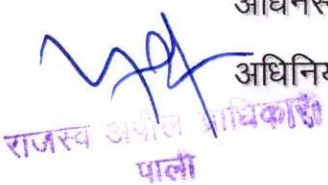 अधिनस्
अधिनिय
राजस्व अपील प्राधिकारी
पाली